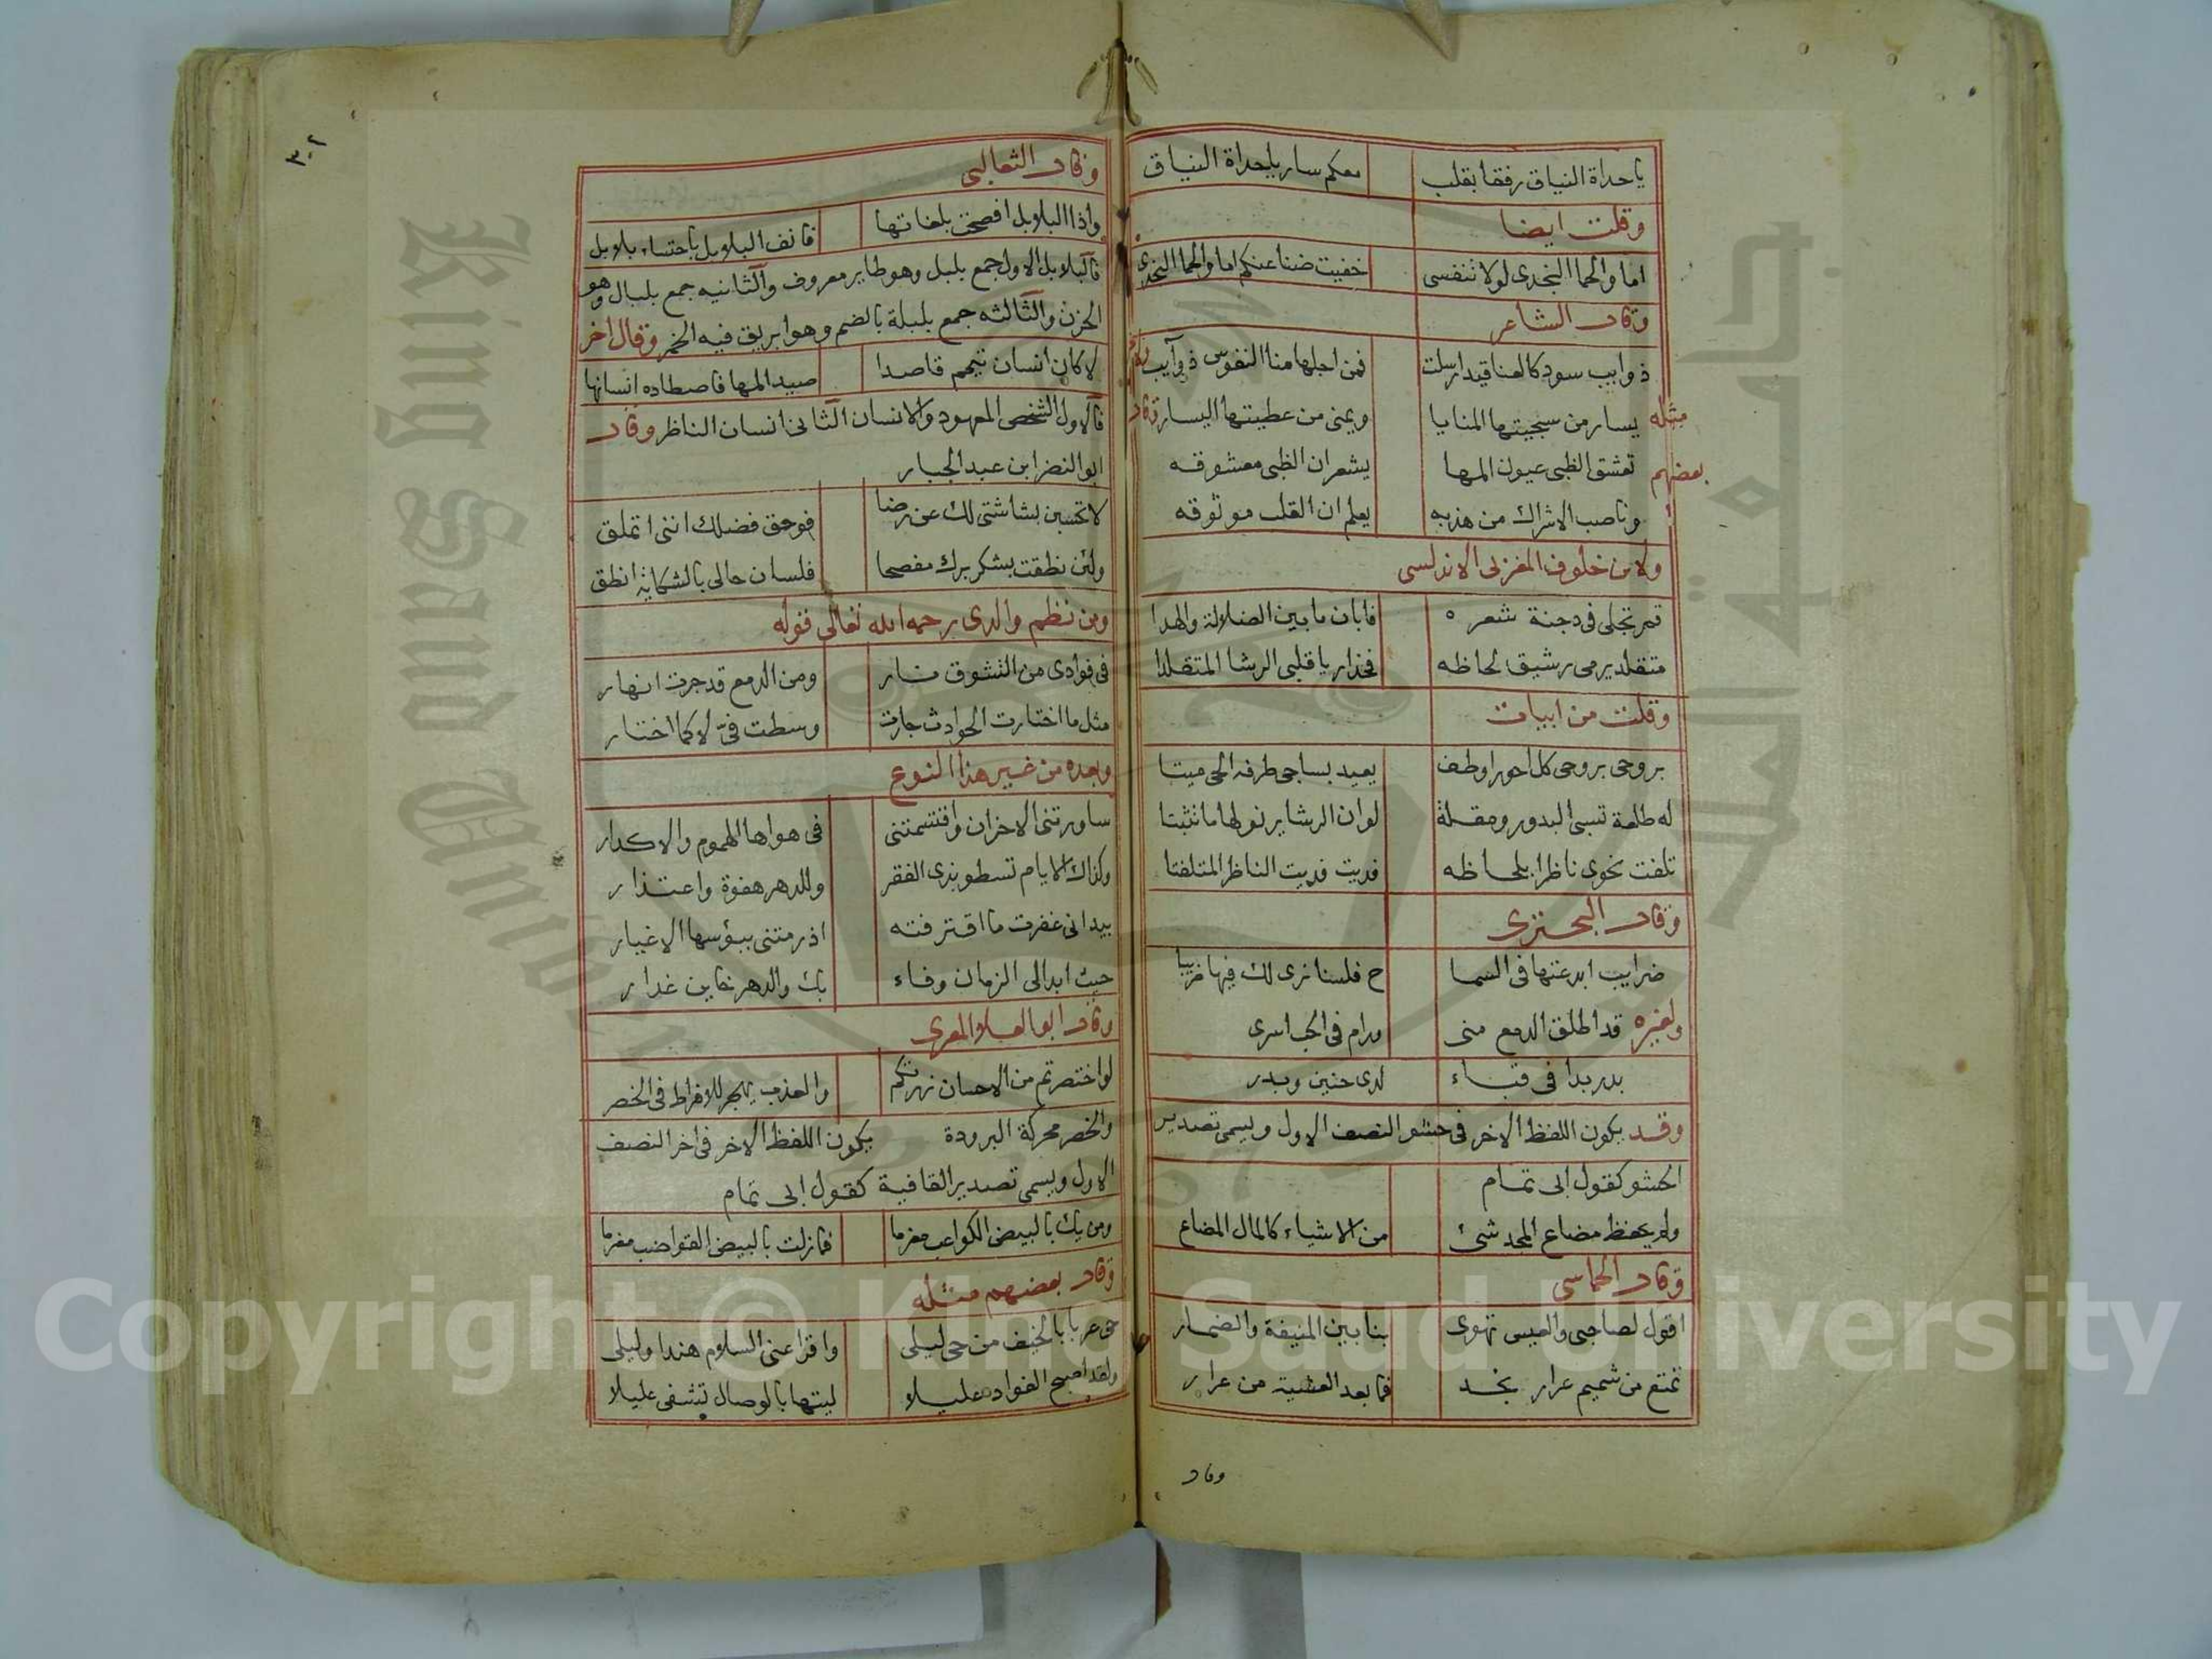 ياحداة النياق رفقا بقلب معكم سار ياحداة النياق
وقلت ايضا
اما والحما النجدى لولا تنفسى خفيت ضنا عنكم اما والحما النجدى
وقال الشاعر
ذوايب سود كالعناقيد ارسلت فمن اجلها منا النفوس ذوآيب
مثله يسار من سجيتها المنايا ويمنى من عطيتها اليسار وقال
بعضهم تعشق الظبى عيون المها يشعر ان الظبى معشوقه
وناصب الاشراك من هذبه يعلم ان القلب موثوقه
ولابن خلوف المغربى الاندلسى
قمر تجلى فى دجنة شعره فابان ما بين الضلالة والهدا
متقلد يرمى رشيق لحاظه فحذار يا قلبى الرشا المتقلدا
وقلت من ابيات
بروحى بروحى كل احور اوطف يعيد بساجى طرفه الحى ميتا
له طلعة تسبى البدور ومقلة لو ان الرشا يرنو لها ما تثبتا
تلفت نحوى ناظرا بلحاظه فديت فديت الناظر المتلفتا
وقال البحترى
ضرايب ابدعتها فى السما ح فلسنا نرى لك فيها ضريبا
ولغيره قد اطلق الدمع منى ورام فى الحب اسرى
بدر بدا فى قباء لدى حنين وبدر
وقد يكون اللفظ الاخر فى حشو النصف الاول ويسمى تصدير
الحشو كقول ابى تمام
ولم يحفظ مضاع المجد شئ من الاشياء كالمال المضاع
وقال الحماسى
اقول لصاحبى والعيس تهوى بنا بين المنيفة والضمار
تمتع من شميم عرار نجد فما بعد العشية من عرار
وقال
٣٠٢
وقال الثعالبى
واذا البلابل افصحت بلغاتها فانف البلابل باحتساء بلابل
فالبلابل الاول جمع بلبل وهو طاير معروف والثانيه جمع بلبال وهو
الحزن والثالثه جمع بلبلة بالضم وهو ابريق فيه الخمر وقال اخر
لا كان انسان تيمم قاصدا صيد المها فاصطاده انسانها
فالاول الشخص المعهود والانسان الثانى انسان الناظر وقال
ابو النضر ابن عبد الجبار
لا تحسبن بشاشتى لك عن رضا فوحق فضلك اننى اتملق
ولئن نطقت بشكر برك مفصحا فلسان حالى بالشكاية انطق
ومن نظم والدى رحمه الله تعالى قوله
فى فوادى من التشوق نار ومن الدمع قد جرت انهار
مثل ما اختارت الحوادث جارت وسطت فىّ لا كما اختار
وبعده من غير هذا النوع
ساورتنى الاحزان واقتسمتنى فى هواها الهموم والاكدار
وكذاك الايام تسطو بذى الفقر وللدهر هفوة واعتذار
بيد انى غفرت ما اقترفته اذ رمتنى ببؤسها الاغيار
حيث ابدا لى الزمان وفاء بك والدهر خاين غدار
وقال ابو العلا المعرى
لو اختصرتم من الاحسان زرتكم والعذب يهجر للافراط فى الخصر
والخصر محركة البرودة يكون اللفظ الاخر فى اخر النصف
الاول ويسمى تصدير القافية كقول ابى تمام
ومن يك بالبيض الكواعب مغرما فما زلت بالبيض القواضب مغرما
وقال بعضهم مثله
حى عربا بالخيف من حى ليلى واقرا عنى السلام هندا وليلى
ولقد اصبح الفواد عليلا ليتها بالوصال تشفى عليلا
King Saud University
جامعة الملك
1957
Copyright © King Saud University